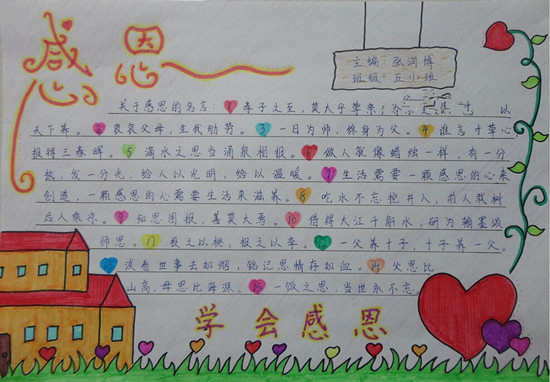 感恩
主编 张润博
班级 五
关于感恩的名言：1 孝子之至，莫大乎尊亲；以
天下养。2 哀哀父母，生我劬劳。3 一日为师，终身为父。4 谁言寸草心
报得三春晖。5 滴水之恩当涌泉相报。6 做人就像蜡烛一样，有一分
热，发一分光，给人以光明，给以温暖。7 生活需要一颗感恩的心来
创造，一颗感恩的心需要生活来滋养。8 吃水不忘挖井人，前人栽树
后人乘凉。9 知恩图报，善莫大焉。10 借得大江千斛水，研为翰墨颂
师恩。11 投之以桃，报之以李。12 一父养十子，十子养一父。
淡看世事去如烟，铭记恩情存如血。14 父恩比
山高，母恩比海深。15 一饭之恩，当世永不忘
学会感恩